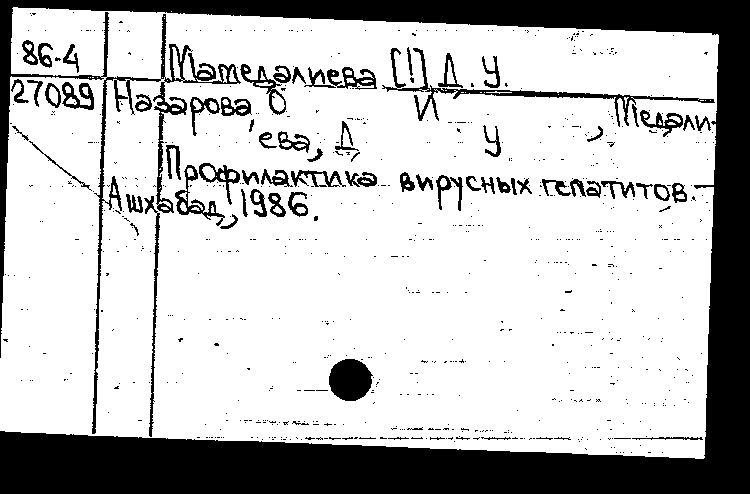 86-4 Мамедалиева [!] Д. У.
27089 Назарова О И , Медали-
ева, Д У
Профилактика вирусных гепатитов. —
Ашхабад, 1986.